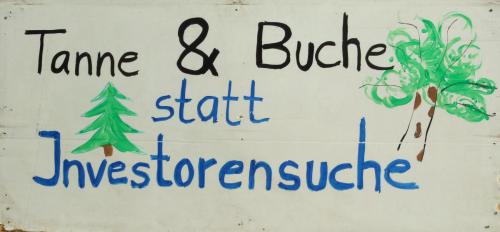 Tanne & Buche
statt
Investorensuche